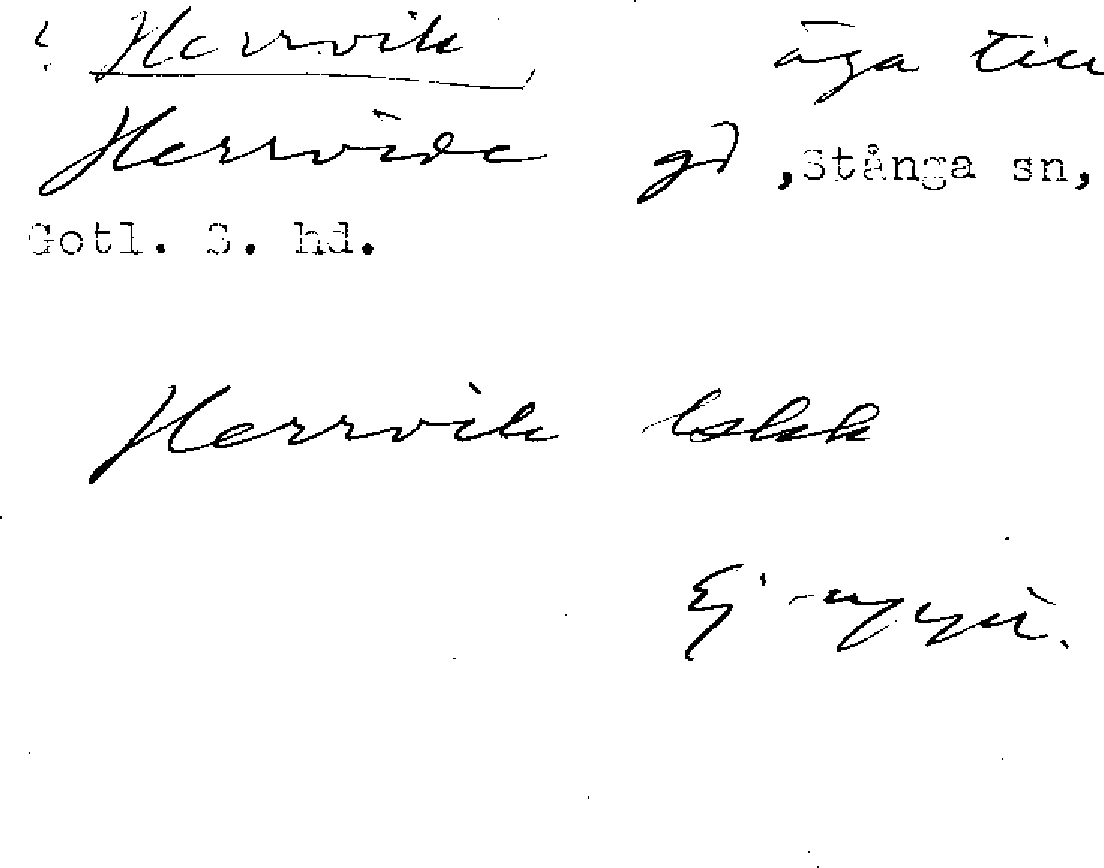 ! Herrvik äga till
Herrvide gd ,Stånga sn,
Gotl. S. hd.
Herrvik lskk
Ej